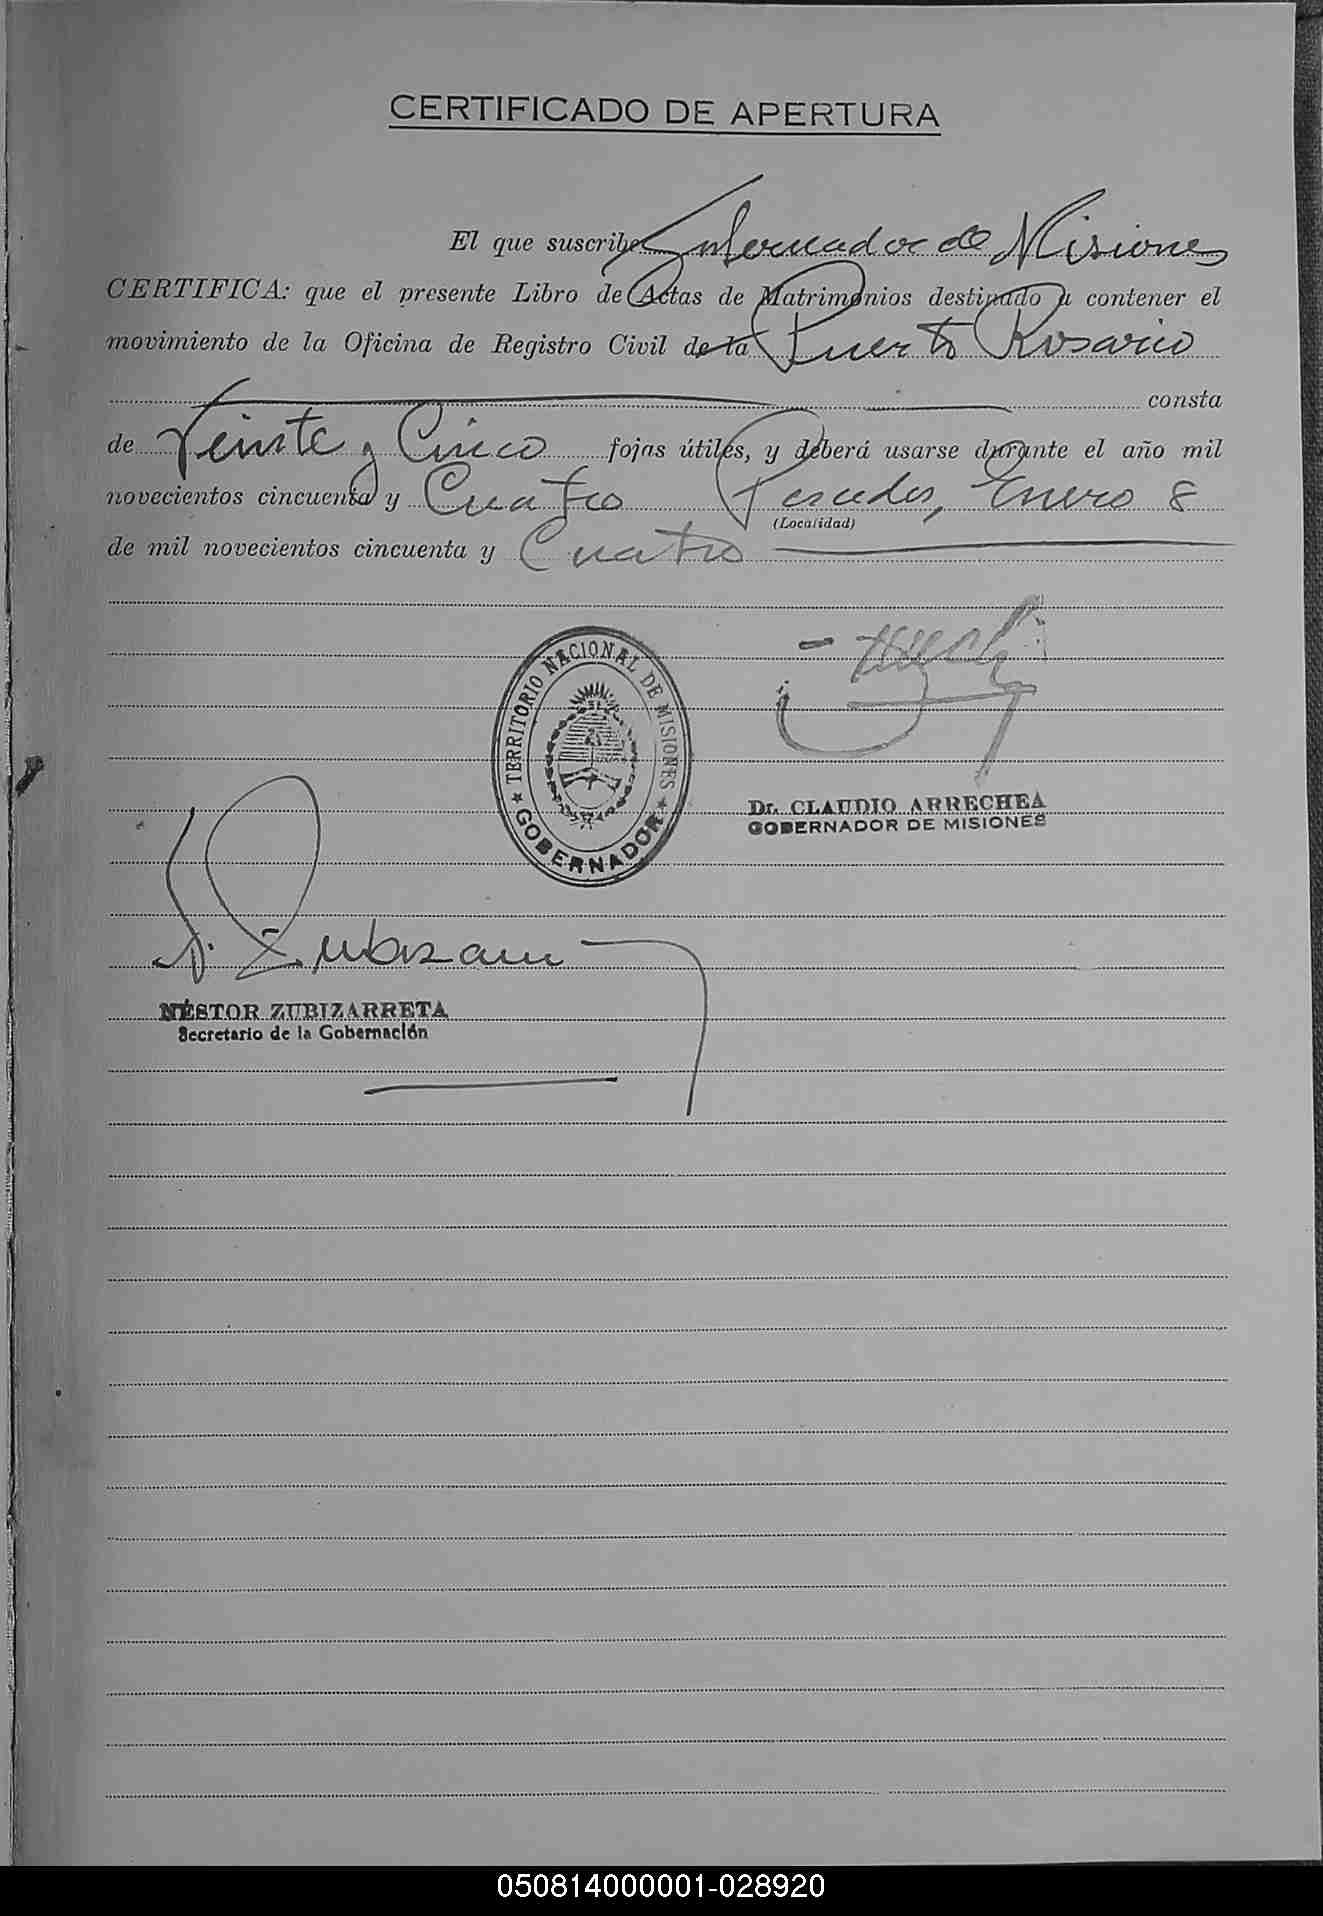 CERTIFICADO DE APERTURA
El que suscribe Gobernador de Misiones
CERTIFICA: que el presente Libro de Actas de Matrimonios destinado a contener el
movimiento de la Oficina de Registro Civil de la Puerto Rosario
consta
de Veinte y Cinco fojas útiles, y deberá usarse durante el año mil
novecientos cincuenta y Cuatro Posadas, Enero 8
(Localidad)
de mil novecientos cincuenta y Cuatro
TERRITORIO NACIONAL DE MISIONES
GOBERNADOR
Dr. CLAUDIO ARRECHEA
GOBERNADOR DE MISIONES
NÉSTOR ZUBIZARRETA
Secretario de la Gobernación
050814000001-028920